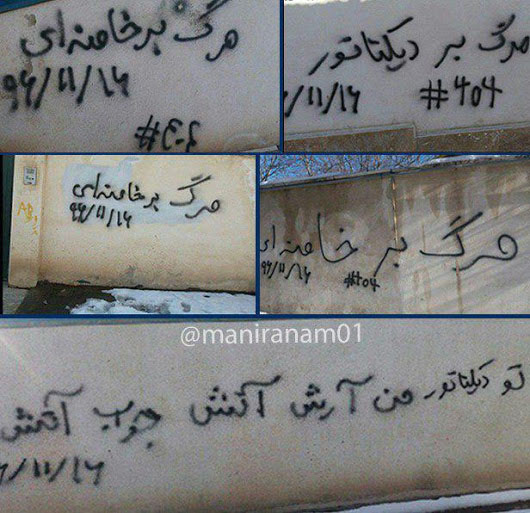 مرگ بر خامنه ای
۹۶/۱۱/۱۶
#۴۰۴
مرگ بر دیکتاتور
/۱۱/۱۶
#404
مرگ بر خامنه ای
۹۶/۱۱/۱۶
مرگ بر خامنه ای
۹۶/۱۱/۱۶
#404
@maniranam01
تو دیکتاتور من آرش آتش جوب آتش
/۱۱/۱۶